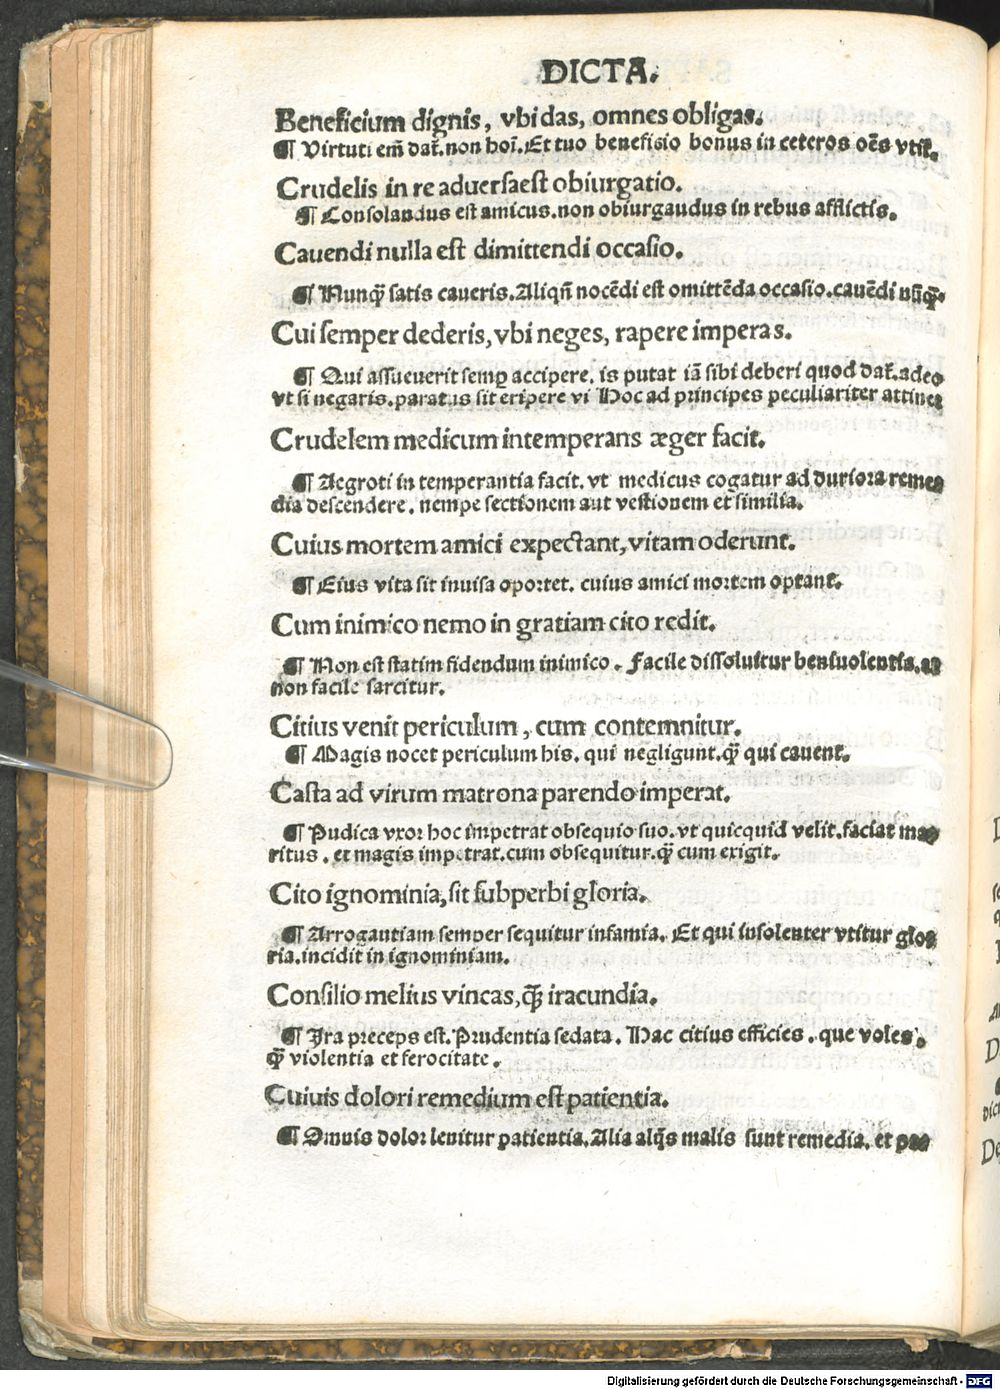 DICTA.
Beneficium dignis, vbi das, omnes obligas.
¶ Virtuti em̄ dat̄. non hoī. Et tuo benefisio bonus in ceteros oēs vtit̄.
Crudelis in re aduersaest obiurgatio.
¶ Consolandus est amicus. non obiurgaudus in rebus afflictis.
Cauendi nulla est dimittendi occasio.
¶ Nunq̄ satis caueris. Aliqn̄ nocēdi est omittēda occasio. cauēdi nūq̄.
Cui semper dederis, vbi neges, rapere imperas.
¶ Qui assueuerit semp accipere. is putat iā sibi deberi quod dat̄. adeo
vt si negaris. paratus sit eripere vi Hoc ad principes peculiariter attinet
Crudelem medicum intemperans æger facit.
¶ Aegroti in temperantia facit. vt medicus cogatur ad duriora reme⸗
dia descendere. nempe sectionem aut vestionem et similia.
Cuius mortem amici expectant, vitam oderunt.
¶ Eius vita sit inuisa oportet. cuius amici mortem optant.
Cum inimico nemo in gratiam cito redit.
¶ Non est statim fidendum inimico. Facile dissoluitur beniuolentia. at
non facile sarcitur.
Citius venit periculum, cum contemnitur.
¶ Magis nocet periculum his. qui negligunt. q̄ qui cauent.
Casta ad virum matrona parendo imperat.
¶ Pudica vxor hoc impetrat obsequio suo. vt quicquid velit. faciat ma⸗
ritus. et magis impetrat. cum obsequitur. q̄ cum exigit.
Cito ignominia, sit subperbi gloria.
¶ Arrogantiam semper sequitur infamia. Et qui insolenter vtitur glo⸗
ria. incidit in ignominiam.
Consilio melius vincas, q̄ iracundia.
¶ Ira preceps est. Prudentia sedata. Hac citius efficies. que voles.
q̄ violentia et ferocitate.
Cuiuis dolori remedium est patientia.
¶ Omnis dolor lenitur patientia. Alia alijs malis sunt remedia. et pa⸗
Digitalisierung gefördert durch die Deutsche Forschungsgemeinschaft - DFG